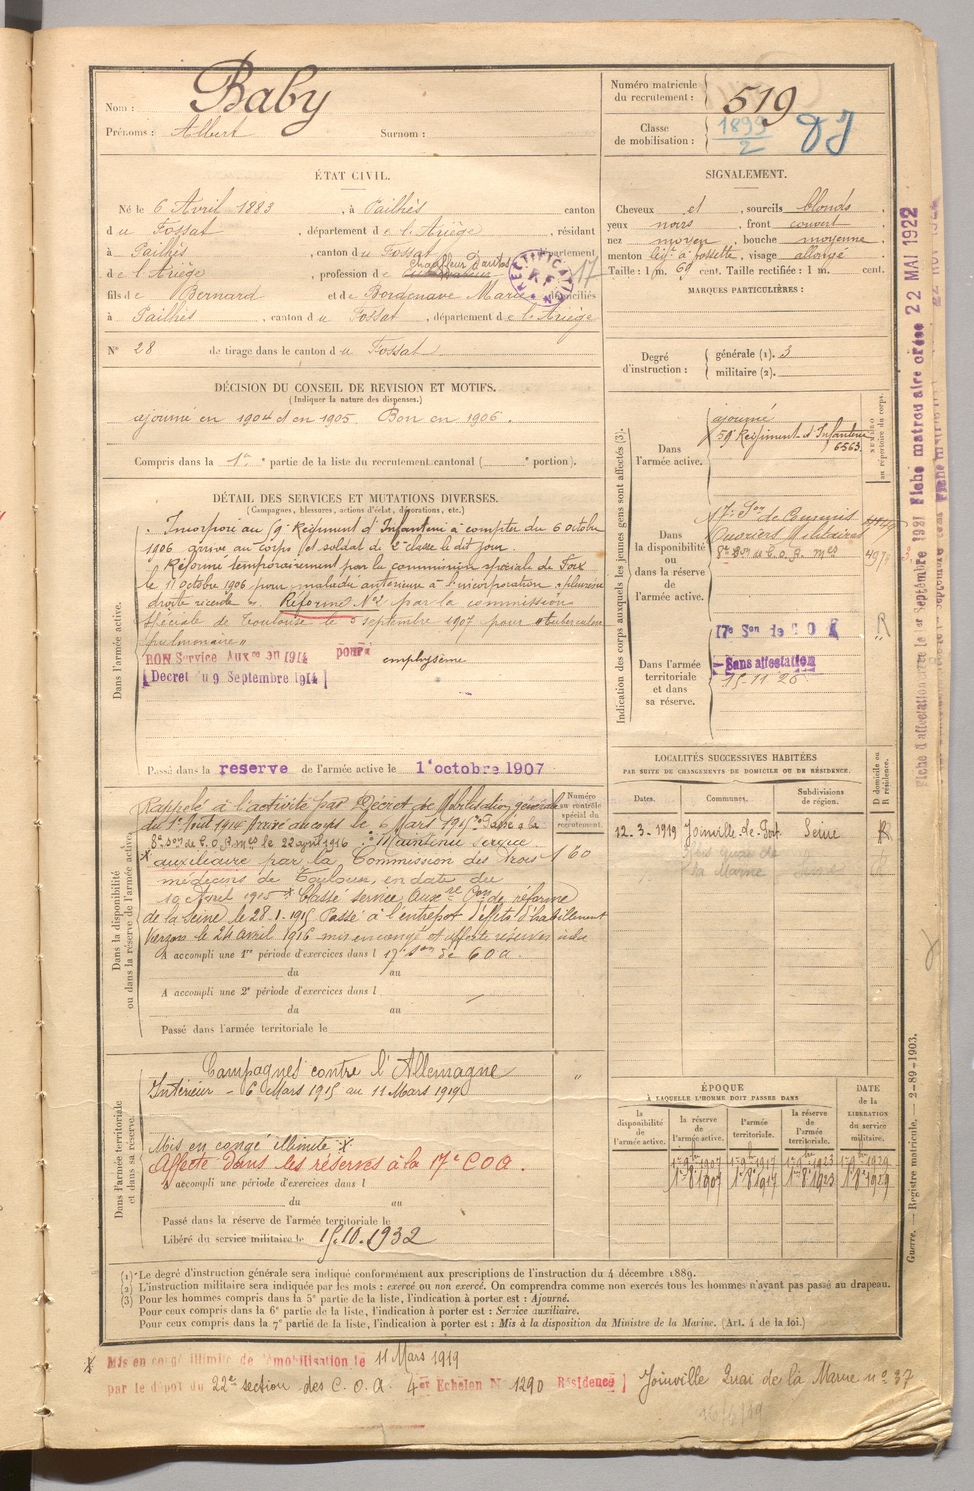 Nom : Baby
Prénoms : Albert Surnom :
Numéro matricule
du recrutement : 519
Classe
de mobilisation : 1899
2
ÉTAT CIVIL.
Né le 6 Avril 1883, à Pailhès canton
du Fossat, département de l'Ariège, résidant
à Pailhès, canton du Fossat, département
Chauffeur d'autos
de l'Ariège, profession de
RECTIFICATION
R.F.
fils de Bernard et de Bordenave Marie domiciliés
à Pailhès, canton du Fossat, département de l'Ariège
N° 28 de tirage dans le canton du Fossat
SIGNALEMENT.
Cheveux et, sourcils blonds,
yeux noirs, front couvert,
nez moyen, bouche moyenne,
menton légt à fossette, visage allongé
Taille : 1 m. 69 cent. Taille rectifiée : 1 m. cent.
MARQUES PARTICULIÈRES :
Degré
d'instruction :
générale (1). 3
militaire (2).
DÉCISION DU CONSEIL DE REVISION ET MOTIFS.
(Indiquer la nature des dispenses.)
ajourné en 1904 et en 1905. Bon en 1906.
Compris dans la 1re partie de la liste du recrutement cantonal ( e portion).
DÉTAIL DES SERVICES ET MUTATIONS DIVERSES.
(Campagnes, blessures, actions d'éclat, décorations, etc.)
Dans l'armée active.
Incorporé au 59e Régiment d'Infanterie à compter du 6 octobre
1906 arrivé au corps et soldat de 2e classe le dit jour.
Réformé temporairement par la commission spéciale de Foix
le 11 octobre 1906 pour maladie antérieure à l'incorporation "pleurésie
droite récente". Réformé N°2 par la commission
spéciale de Toulouse le 5 septembre 1907 pour "tuberculose
pulmonaire"
BON Service Auxre en 1914 pour emphysème
[Décret du 9 Septembre 1914]
Passé dans la reserve de l'armée active le 1 octobre 1907
Indication des corps auxquels les jeunes gens sont affectés (3).
NUMÉRO
au répertoire du corps.
Dans
l'armée active.
ajourné
59e Régiment d'Infanterie
6563
Dans
la disponibilité
ou
dans la réserve
de
l'armée active.
17e Son de Commis
Ouvriers Militaires
8e Son de C.O.A. Mes
Dans l'armée
territoriale
et dans
sa réserve.
17e Son de C O A
Sans affectation
15-11 26
R
LOCALITÉS SUCCESSIVES HABITÉES
PAR SUITE DE CHANGEMENTS DE DOMICILE OU DE RÉSIDENCE.
Dates. Communes. Subdivisions
de région. D domicile ou
R résidence.
12-3-1919 Joinville-le-Pont Seine R
Quai de
la Marne Seine
Dans la disponibilité
ou dans la réserve de l'armée active.
Numéro
au contrôle
spécial du
recrutement.
160
Rappelé à l'activité par Décret de Mobilisation générale
du 1er Août 1914 Arrivé au corps le 6 Mars 1915 Passé à la
8e Son de C.O.A. Mes le 22 avril 1916 Maintenu Service
x auxiliaire par la Commission des Trois
médecins de Toulouse, en date du
10 Avril 1915 x Classé service Auxre Con de réforme
de la Seine le 28-1-1915 Passé à l'entrepôt d'effets d'habillement
Vierzon le 24 avril 1916 mis en congé et affecté réserves
A accompli une 1re période d'exercices dans l 17e Son de C O A.
du au
A accompli une 2e période d'exercices dans l
du au
Passé dans l'armée territoriale le
Dans l'armée territoriale
et dans sa réserve.
Campagnes contre l'Allemagne
Intérieur - 6 Mars 1915 au 11 Mars 1919
Mis en congé illimité x
Affecté dans les réserves à la 17e C O A.
A accompli une période d'exercices dans l
du au
Passé dans la réserve de l'armée territoriale le
Libéré du service militaire le 15.10.1932
ÉPOQUE
À LAQUELLE L'HOMME DOIT PASSER DANS
la
disponibilité
de
l'armée active.
la réserve
de
l'armée active.
l'armée
territoriale.
la réserve
de
l'armée
territoriale.
DATE
de la
LIBÉRATION
du service
militaire.
1er 9bre 1907 1er 9bre 1917 1er 9bre 1923 1er 9bre 1929
1er 8e 1907 1er 8e 1917 1er 8e 1923 1er 8e 1929
(1) Le degré d'instruction générale sera indiqué conformément aux prescriptions de l'instruction du 4 décembre 1889.
(2) L'instruction militaire sera indiquée par les mots : exercé ou non exercé. On comprendra comme non exercés tous les hommes n'ayant pas passé au drapeau.
(3) Pour les hommes compris dans la 5e partie de la liste, l'indication à porter est : Ajourné.
Pour ceux compris dans la 6e partie de la liste, l'indication à porter est : Service auxiliaire.
Pour ceux compris dans la 7e partie de la liste, l'indication à porter est : Mis à la disposition du Ministre de la Marine. (Art. 4 de la loi.)
x Mis en congé illimité de démobilisation le 11 Mars 1919
par le dépôt du 22e section des C. O. A. 4er Echelon N° 1290 Résidence] Joinville Quai de la Marne n° 37
16/6/19
Fiche d'affectation créée le 1er Septembre 1931 Fiche matriculaire créée 22 MAI 1922
Guerre. — Registre matricule. — 2-89-1903.